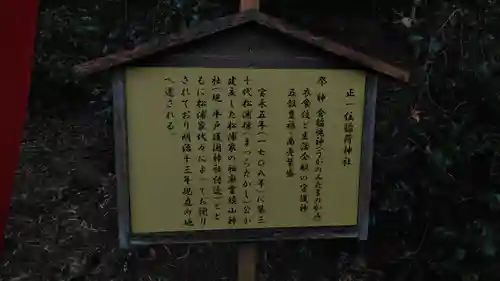 正一位稲荷神社
祭神 倉稲魂神(うかのみたまのかみ)
衣食住と生活全般の守護神
五穀豊穣・商売繁盛
宝永五年(一七〇八年)に第三
十代松浦棟(まつらたかし)公が
建立した松浦家の祖廟霊椿山神
社(現 平戸護国神社付近)とと
もに松浦家代々によってお祀り
されており明治十三年現在の地
へ遷される。